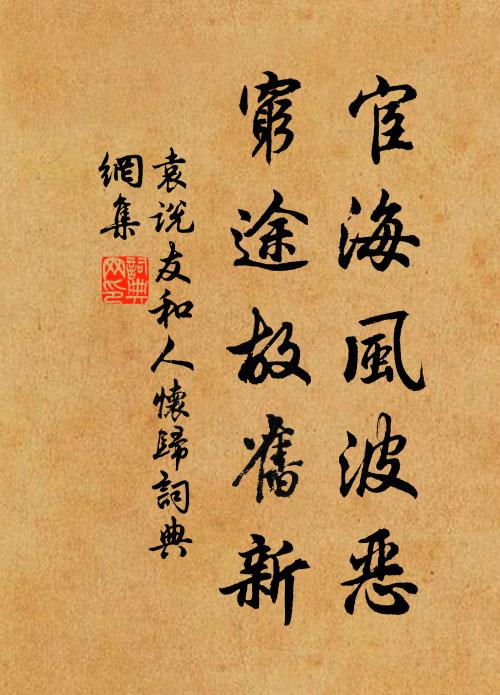 宦海風波惡
窮途故舊新
袁说友和人懷歸詞典
網集
詞典網印